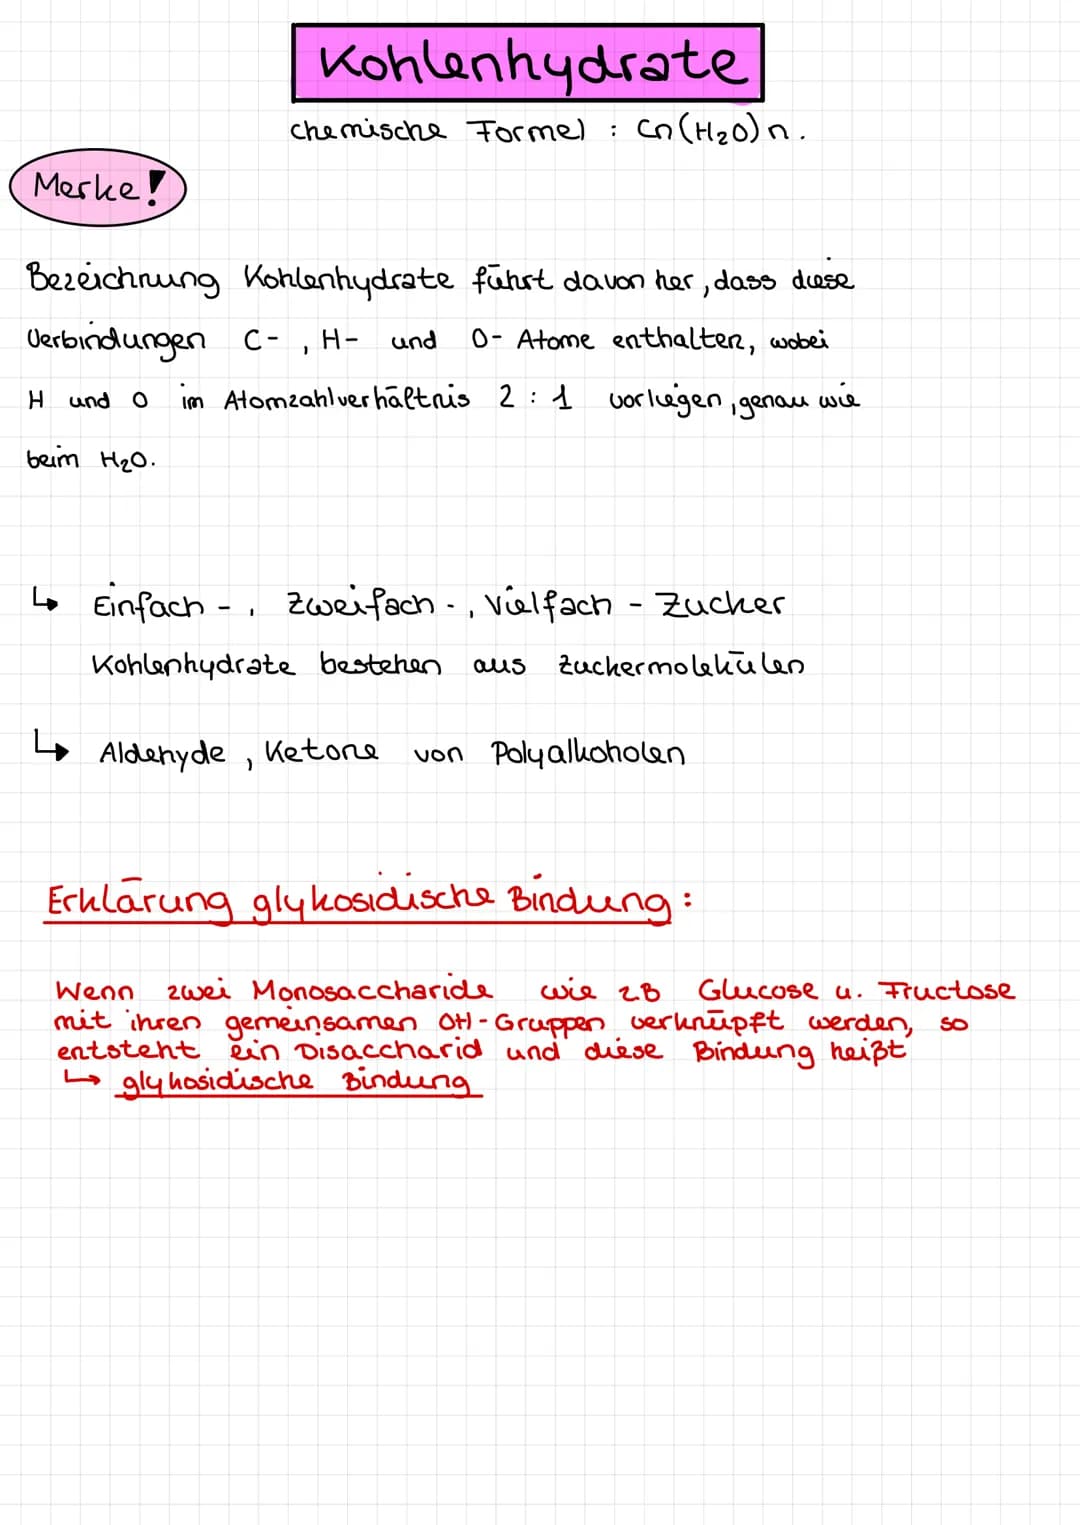 Kohlenhydrate
chemische Formel : Cn(H₂O)n.
Merke!
Bezeichnung Kohlenhydrate führt davon her, dass diese
Verbindungen C-, H- und O- Atome enthalten, wobei
H und O im Atomzahlverhältnis 2 : 1 vorliegen, genau wie
beim H₂O.
↳ Einfach -, Zweifach -, Vielfach - Zucker
Kohlenhydrate bestehen aus Zuckermolekülen
↳ Aldehyde, Ketone von Polyalkoholen
Erklärung glykosidische Bindung:
Wenn zwei Monosaccharide wie zB Glucose u. Fructose
mit ihren gemeinsamen OH-Gruppen verknüpft werden, so
entsteht ein Disaccharid und diese Bindung heißt
↳ glykosidische Bindung